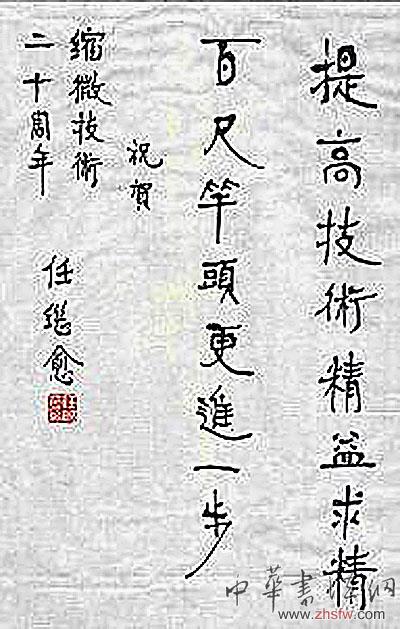 提高技術精益求精
百尺竿頭更進一步
祝賀
缩微技術
二十周年
任继愈
中華書法網
www.zhsfw.com